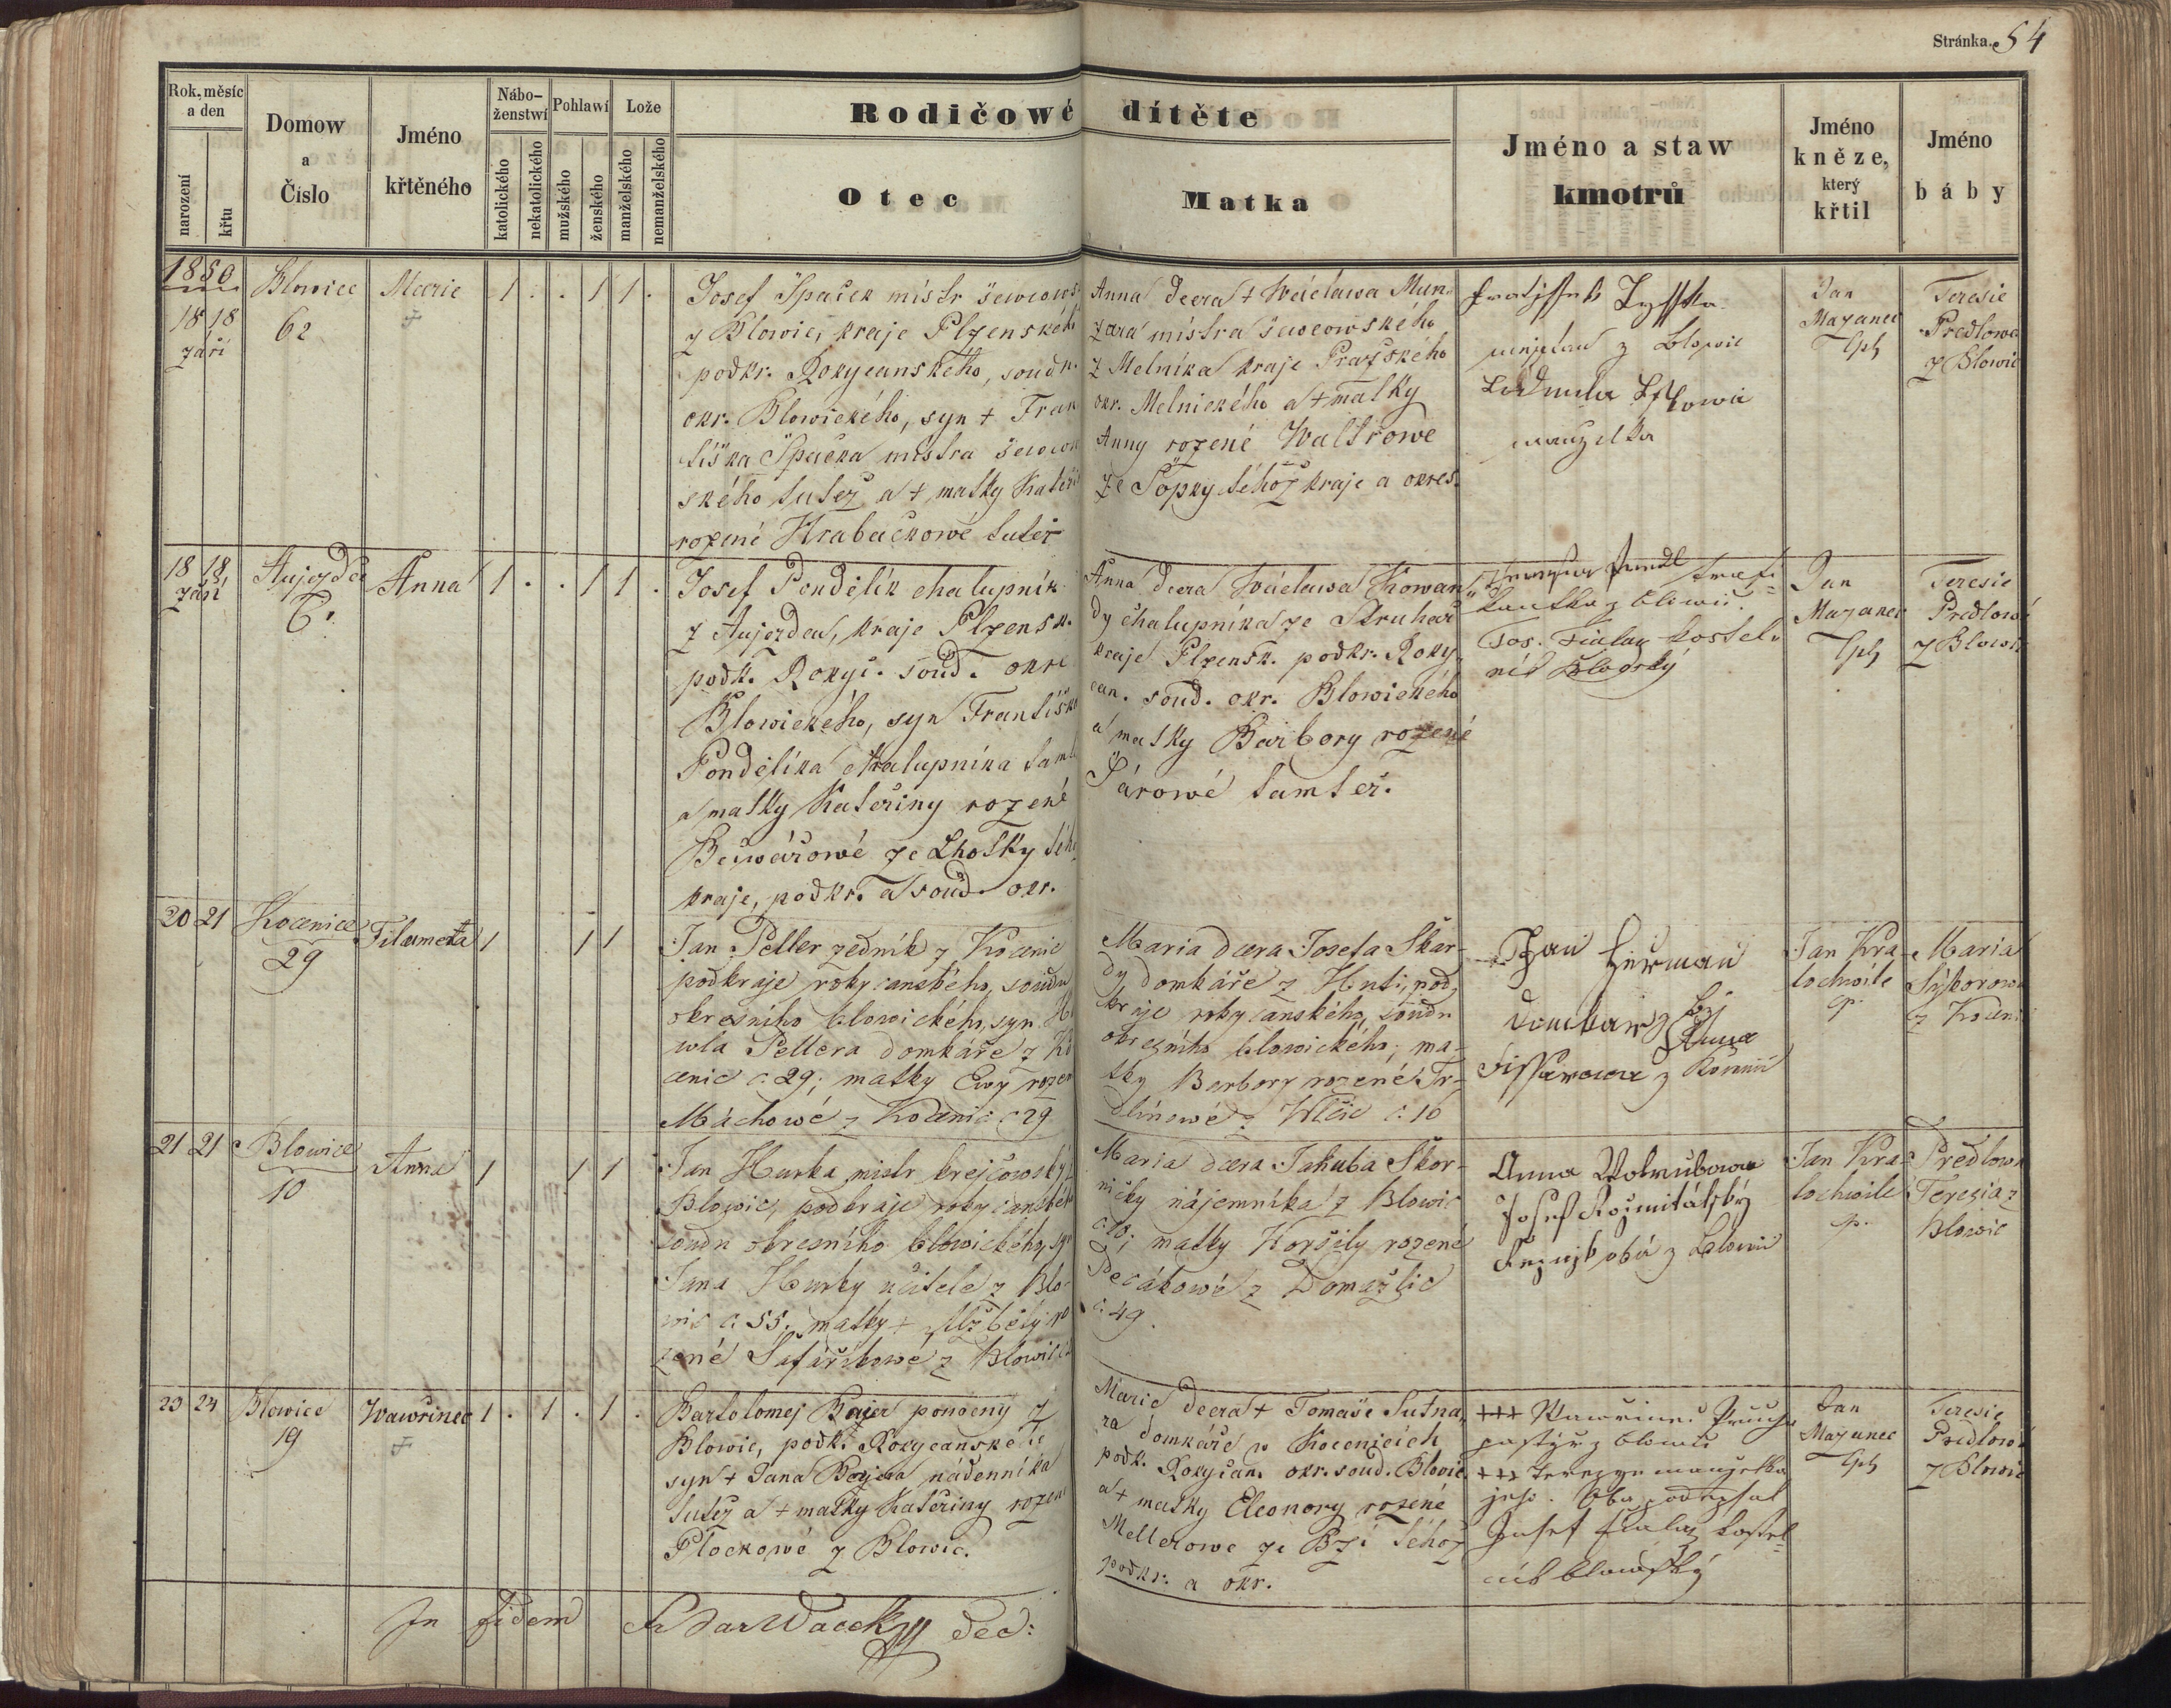 Stránka 54
Rok, měsíc a den
narození
křtu
Domow a Číslo
Jméno křtěného
Nábo-ženstwí
katolického
nekatolického
Pohlawí
mužského
ženského
Lože
manželského
nemanželského
Rodičowé dítěte
Otec
Matka
Jméno a staw kmotrů
Jméno kněze, který křtil
Jméno báby
1850
18 18
září
Blowice
62
Marie
1 . . 1 1 .
Josef Špaček mistr šewcows.
z Blowic, kraje Plzenského
podkr. Rokycanského, soudn.
okr. Blowického, syn + Fran
tiška Špačka mistra šewcow
ského tutéž a + matky Kateři
rozené Hrabačkowé tutéž
Anna dcera + Wáclawa Mun-
zara mistra šewcowského
z Melníka kraje Pražského
okr. Melnického a + matky
Anny rozené Waltrowe
ze Šopky téhož kraje a okres.
z Blowic
Ludmila
manzelka
Jan
Mazanec
Teresie
Predlowa
z Blowic
18 18
září
Aujezdec
6.
Anna
1 . . 1 1 .
Josef Pondělík chalupník
z Aujezdca, kraje Plzensk.
podk. Rokyc. soud. okre
Blowického, syn Františka
Pondělíka chalupníka tamt
a matky Kateřiny rozené
Bečwářowé ze Lhotky téh
kraje, podkr. a soud. okr.
Anna dcera Wáclawa Kowan
dy chalupníka ze Struhař
kraje Plzensk. podkr. Roky
can. soud. okr. Blowického
a matky Barbory rozené
Šárowé tamtéž.
z Blowic.
Jos. Fialay kostel-
ník Blowský
Jan
Mazanec
Teresie
Predlowá
z Blowic
20 21
Kocenice
29
Filomena
1 1 1
Jan Peller zedník z Kocenic
podkraje rokycanského, soudu
okresního blowického, syn
wla Pellera domkáře z Ko
cenic č. 29; matky Ewy rozen
Máchowé z Kocenic č 29
Maria dcera Josefa Škar-
dy domkáře z Huti, pod
kraje rokycanského, soudu
okresního blowického; ma-
tky Barbory rozené Tr-
dlinowé z Wlčic č. 10
Jan Heřman
domkář z
Anna
Fissarowa z Kocenic
Jan Kra-
tochwíle
Maria
Sýkorowa
z Kocen
21 21
Blowice
10
Anna
1 1 1
Jan Hurka mistr krejčowský z
Blowic, podkraje rokycanského
soudu okresního blowického, syn
Jana Hurky učitele z Blo-
wic č. 55. matky + Alžběty ro
zené Šafaříkowé z Blowic
Maria dcera Jakuba Škor-
ničky nájemníka z Blowic
č. 10; matky Woršily rozené
Pecákowé z Domažlic
č. 49.
Anna Wolmubowa
Josef Rožmitálský
oba z Blowic
Jan Kra-
tochwíle
Předlowa
Teresia z
Blowic
23 24
Blowice
19
Wawřinec
1 . 1 . 1 .
Bartolomej Bayer ponocný z
Blowic, podk. Rokycanského
syn + Jana Bayera nádenníka
tutéž a + matky Kateřiny rozené
Plockowé z Blowic.
Marie dcera + Tomáše Sutna
ra domkáře w Kocenicích
podk. Rokyčan. okr. soud. Blowic
a + matky Eleonory rozené
Mellerowe ze Bzí téhož
podkr. a okr.
+++ Wawřinec
pastýř z Blowic
+++ Terezye manzelka
jeho. Oba podepsal
Josef Fialay kostel-
ník blowický
Jan
Mazanec
Teresie
Predlowá
z Blowic
In fidem Wacek Děd: